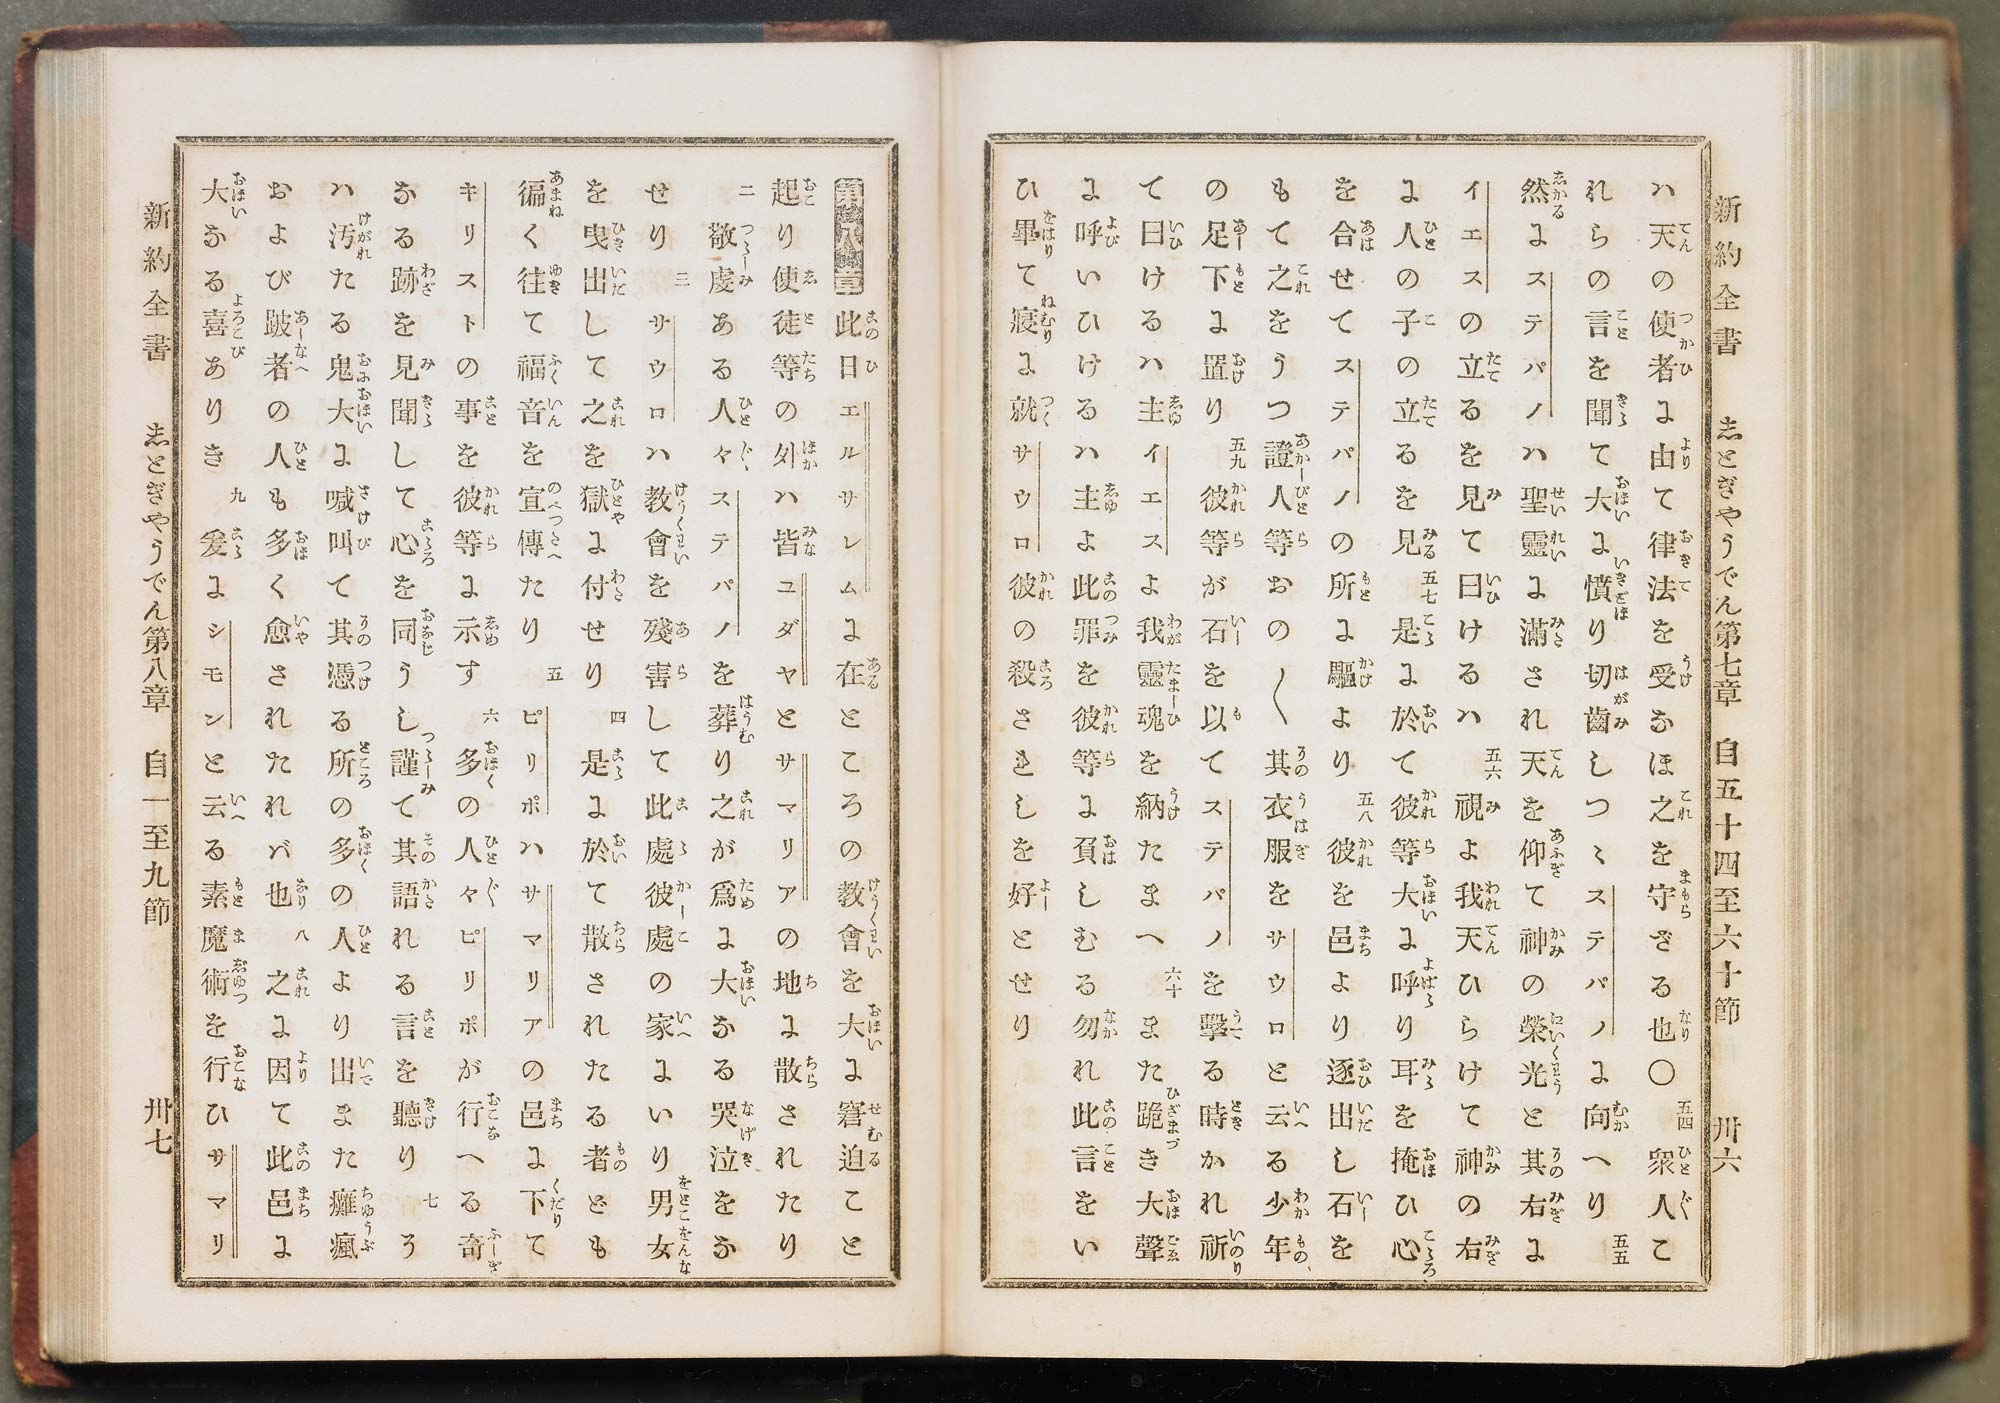 新約全書　志とぎやうでん第七章　自五十四至六十節　卅六
ハ天の使者に由て律法を受なほ之を守ざる也〇五四衆人こ
れらの言を聞て大に憤り切齒しつゝステパノに向へり五五
然にステパノハ聖靈に滿され天を仰て神の榮光と其右に
イエスの立るを見て曰けるハ五六視よ我天ひらけて神の右
に人の子の立るを見る五七是に於て彼等大に呼り耳を掩ひ心
を合せてステパノの所に驅より五八彼を邑より逐出し石を
もて之をうつ證人等おの〱其衣服をサウロと云る少年
の足下に置り五九彼等が石を以てステパノを擊る時かれ祈
て曰けるハ主イエスよ我靈魂を納たまへ六十また跪き大聲
に呼いひけるハ主よ此罪を彼等に負しむる勿れ此言をい
ひ畢て寢に就サウロ彼の殺さるゝを好とせり
新約全書　志とぎやうでん第八章　自一至九節　卅七
第八章此日エルサレムに在ところの教會を大に窘迫こと
起り使徒等の外ハ皆ユダヤとサマリアの地に散されたり
二敬虔ある人々ステパノを葬り之が爲に大なる哭泣をな
せり三サウロハ教會を殘害して此處彼處の家にいり男女
を曳出して之を獄に付せり四是に於て散されたる者ども
徧く往て福音を宣傳たり五ピリポハサマリアの邑に下て
キリストの事を彼等に示す六多の人々ピリポが行へる奇
なる跡を見聞して心を同うし謹て其語れる言を聽り七そ
ハ汚たる鬼大に喊叫て其憑る所の多の人より出また癱瘋
および跛者の人も多く愈されたれバ也八之に因て此邑に
大なる喜ありき九爰にシモンと云る素魔術を行ひサマリ